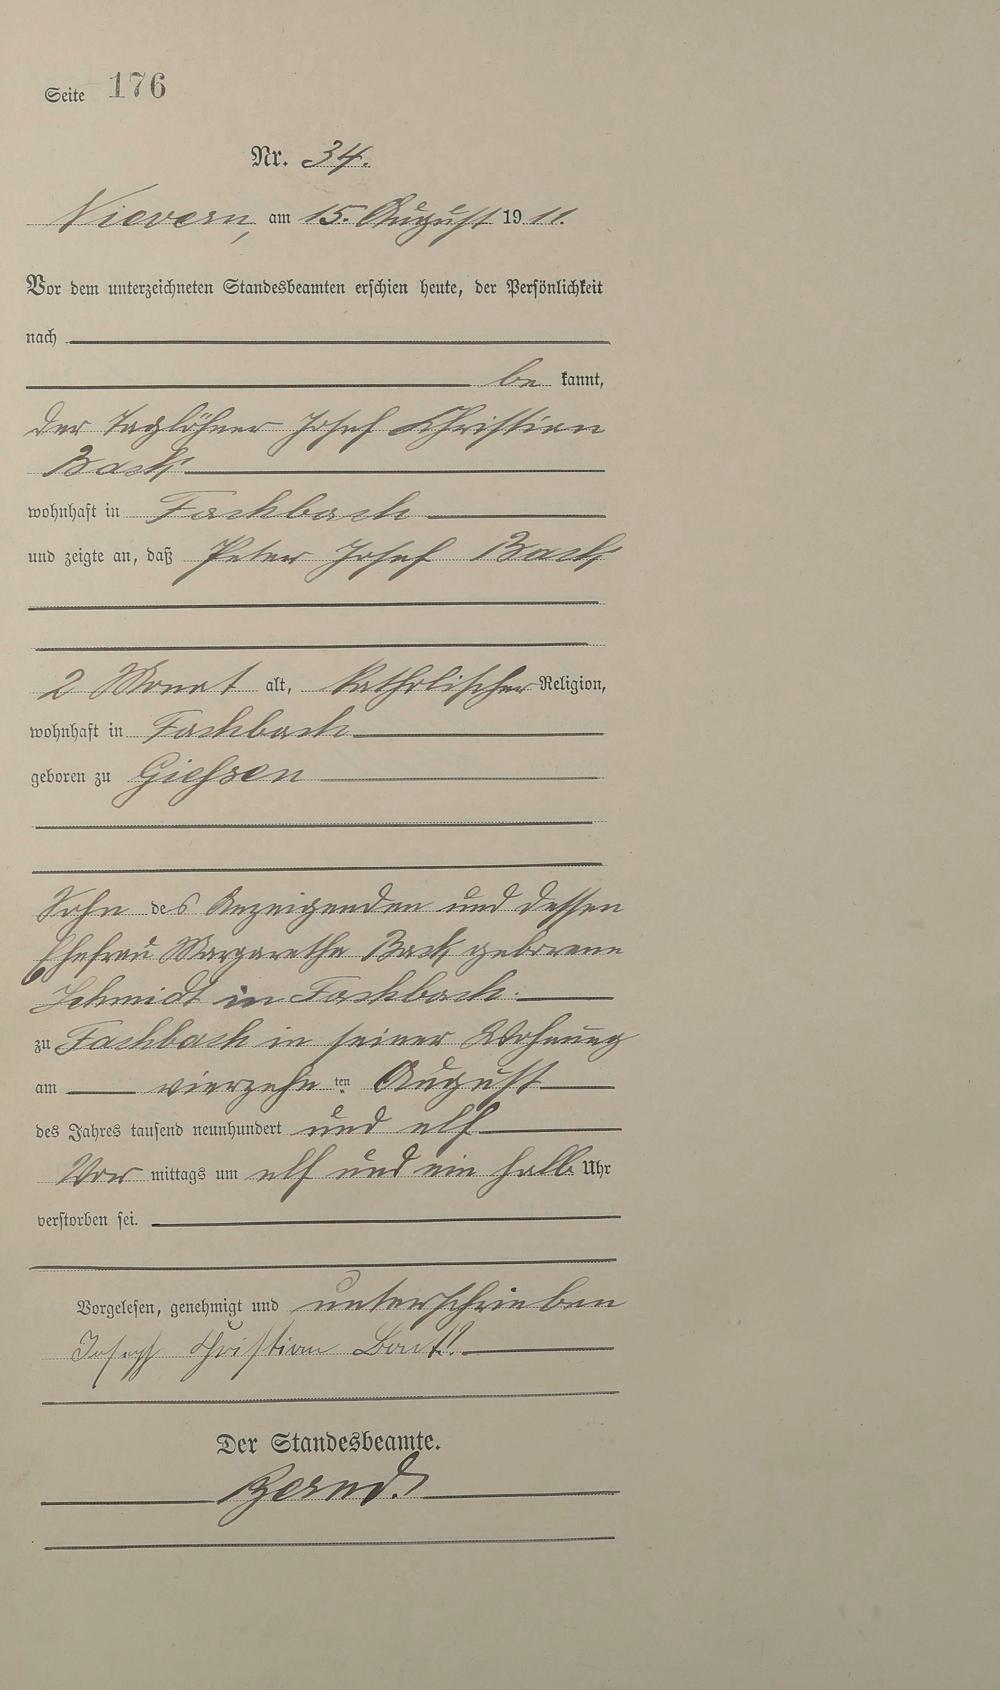 Seite 176
Nr. 34.
Nievern, am 15. August 1911.
Vor dem unterzeichneten Standesbeamten erschien heute, der Persönlichkeit
nach
be kannt,
der Taglöhner Josef Christian
Back
wohnhaft in Fachbach
und zeigte an, daß Peter Josef Back
2 Monat alt, katholischer Religion,
wohnhaft in Fachbach
geboren zu Giessen
Sohn des Anzeigenden und dessen
Ehefrau Margarethe Back geborene
Schmidt in Fachbach.
zu Fachbach in seiner Wohnung
am vierzehn ten August
des Jahres tausend neunhundert und elf
Vor mittags um elf und ein halb Uhr
verstorben sei.
Vorgelesen, genehmigt und unterschrieben
Joseph Christian
Der Standesbeamte.
Bernd.